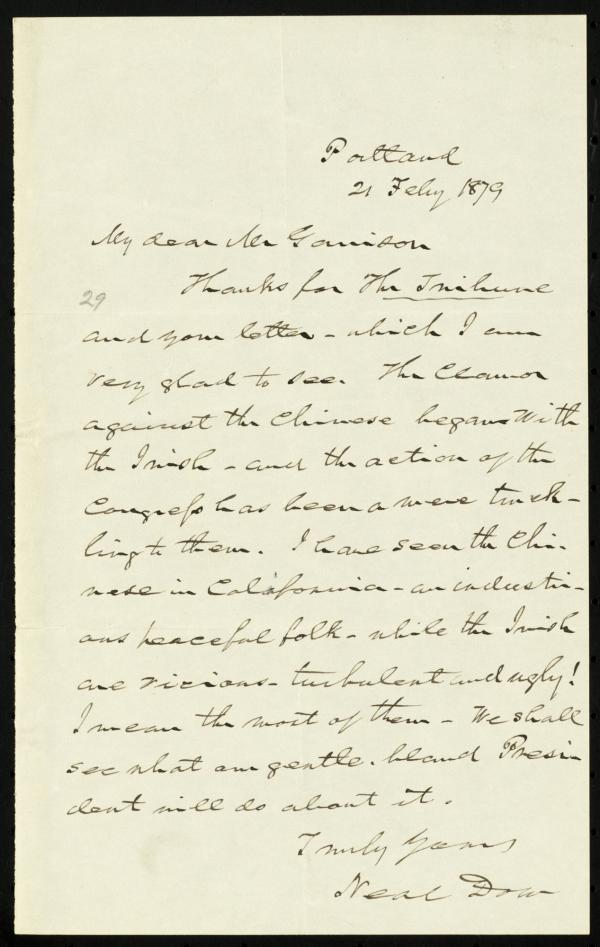 Portland
21 Feby 1879
My dear Mr Garrison
Thanks for The Tribune
29
and your letter - which I am
very glad to see. The Clamor
against the Chinese began with
the Irish - and the action of the
Congress has been a mere truck-
ling to them. I have seen the Chi-
nese in California - an industri-
ous peaceful folk - while the Irish
are vicious - turbulent and ugly!
I mean the most of them - We shall
see what our gentle, bland Presi-
dent will do about it.
Truly Yours
Neal Dow